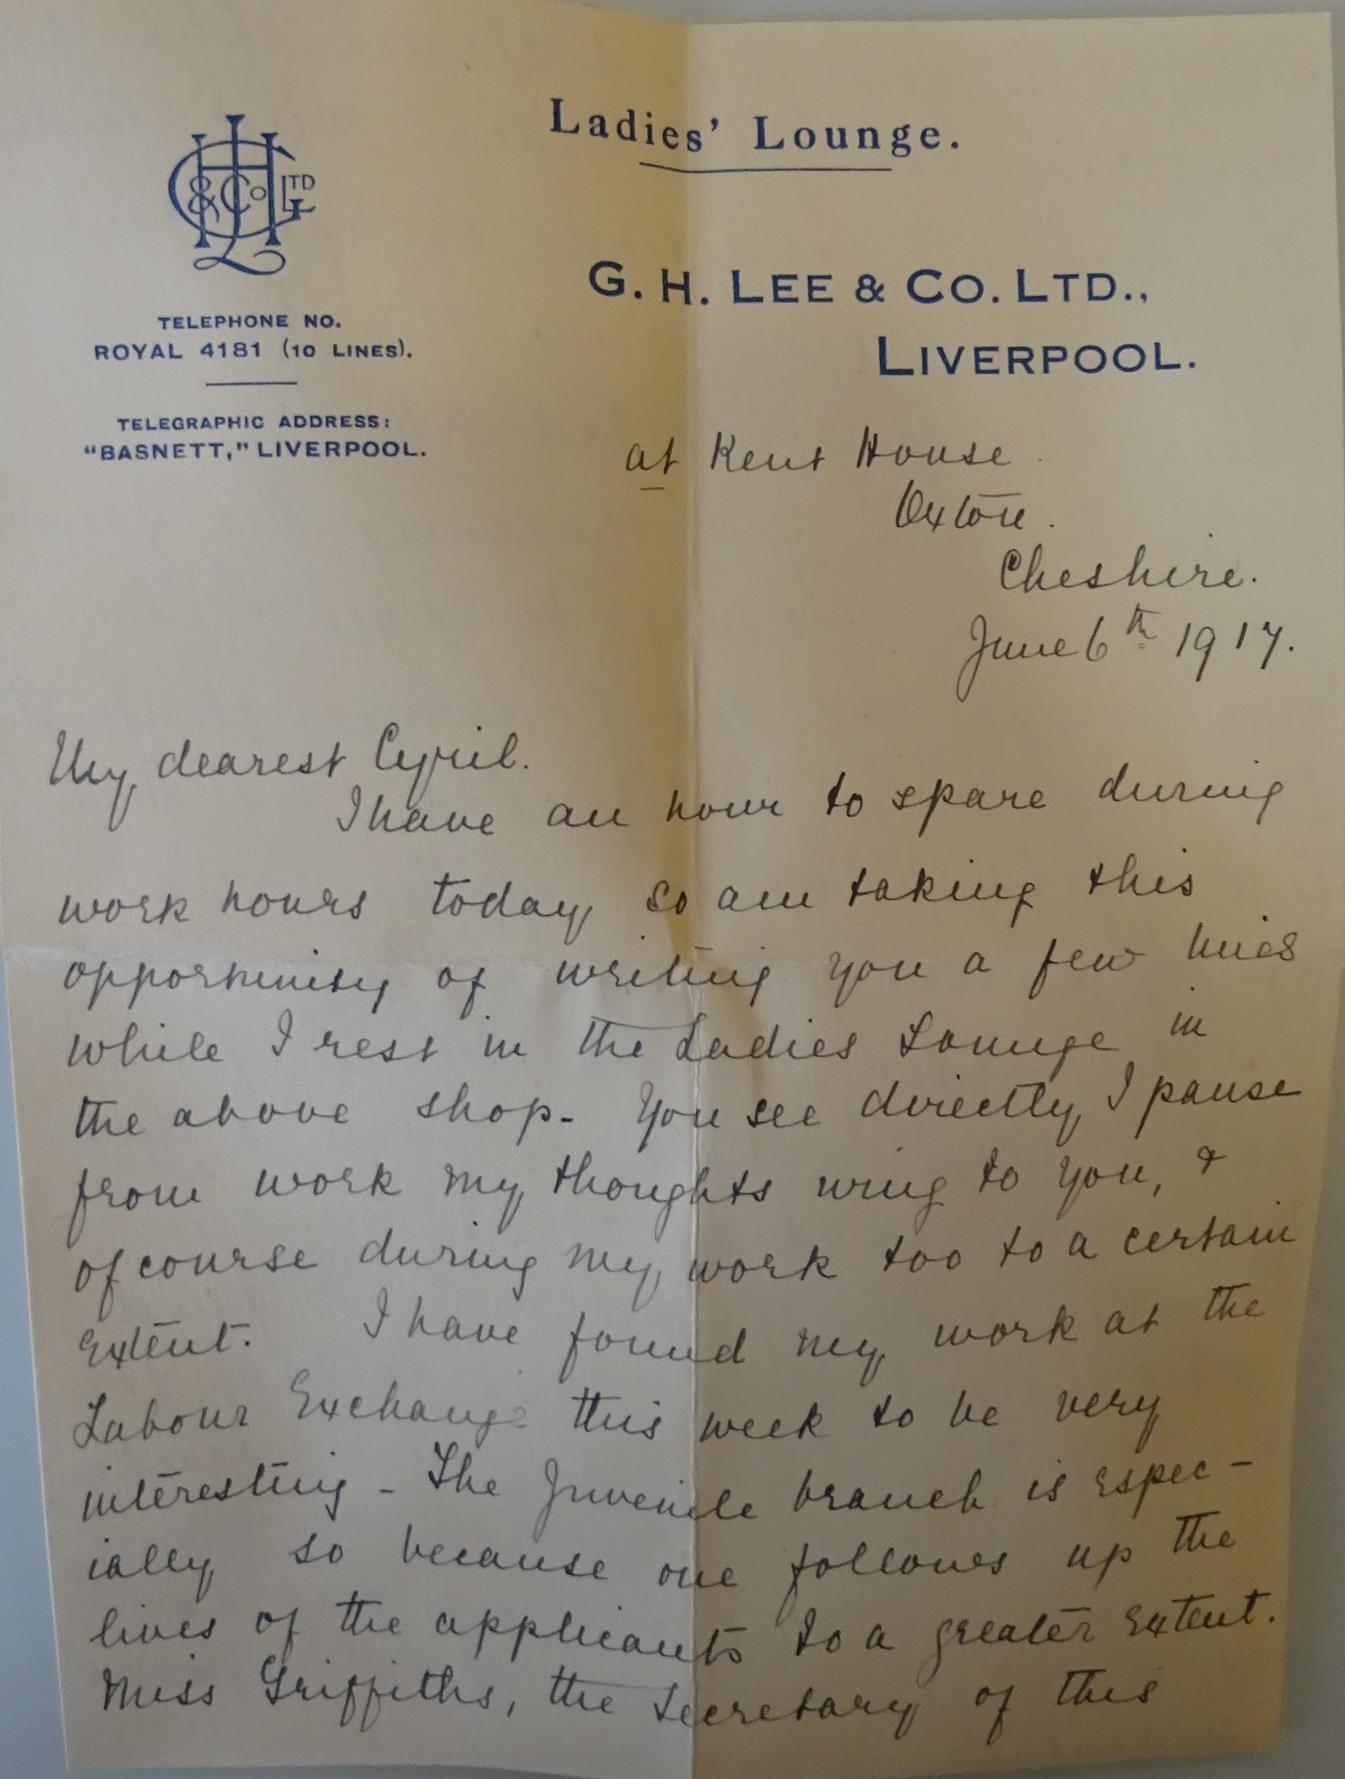 Ladies' Lounge.
G. H. LEE & CO. LTD.,
LIVERPOOL.
GHL & Co LTD
TELEPHONE NO.
ROYAL 4181 (10 LINES).
TELEGRAPHIC ADDRESS:
"BASNETT," LIVERPOOL.
at Kent House
Oxton.
Cheshire.
June 6th 1917.
My dearest Cyril.
I have an hour to spare during
work hours today so am taking this
opportunity of writing you a few lines
while I rest in the Ladies Lounge in
the above shop - You see directly I pause
from work my thoughts wing to you, &
of course during my work too to a certain
extent. I have found my work at the
Labour Exchange this week to be very
interesting - The Juvenile branch is espec-
ially so because one follows up the
lives of the applicants to a greater extent.
Miss Griffiths, the Secretary of this